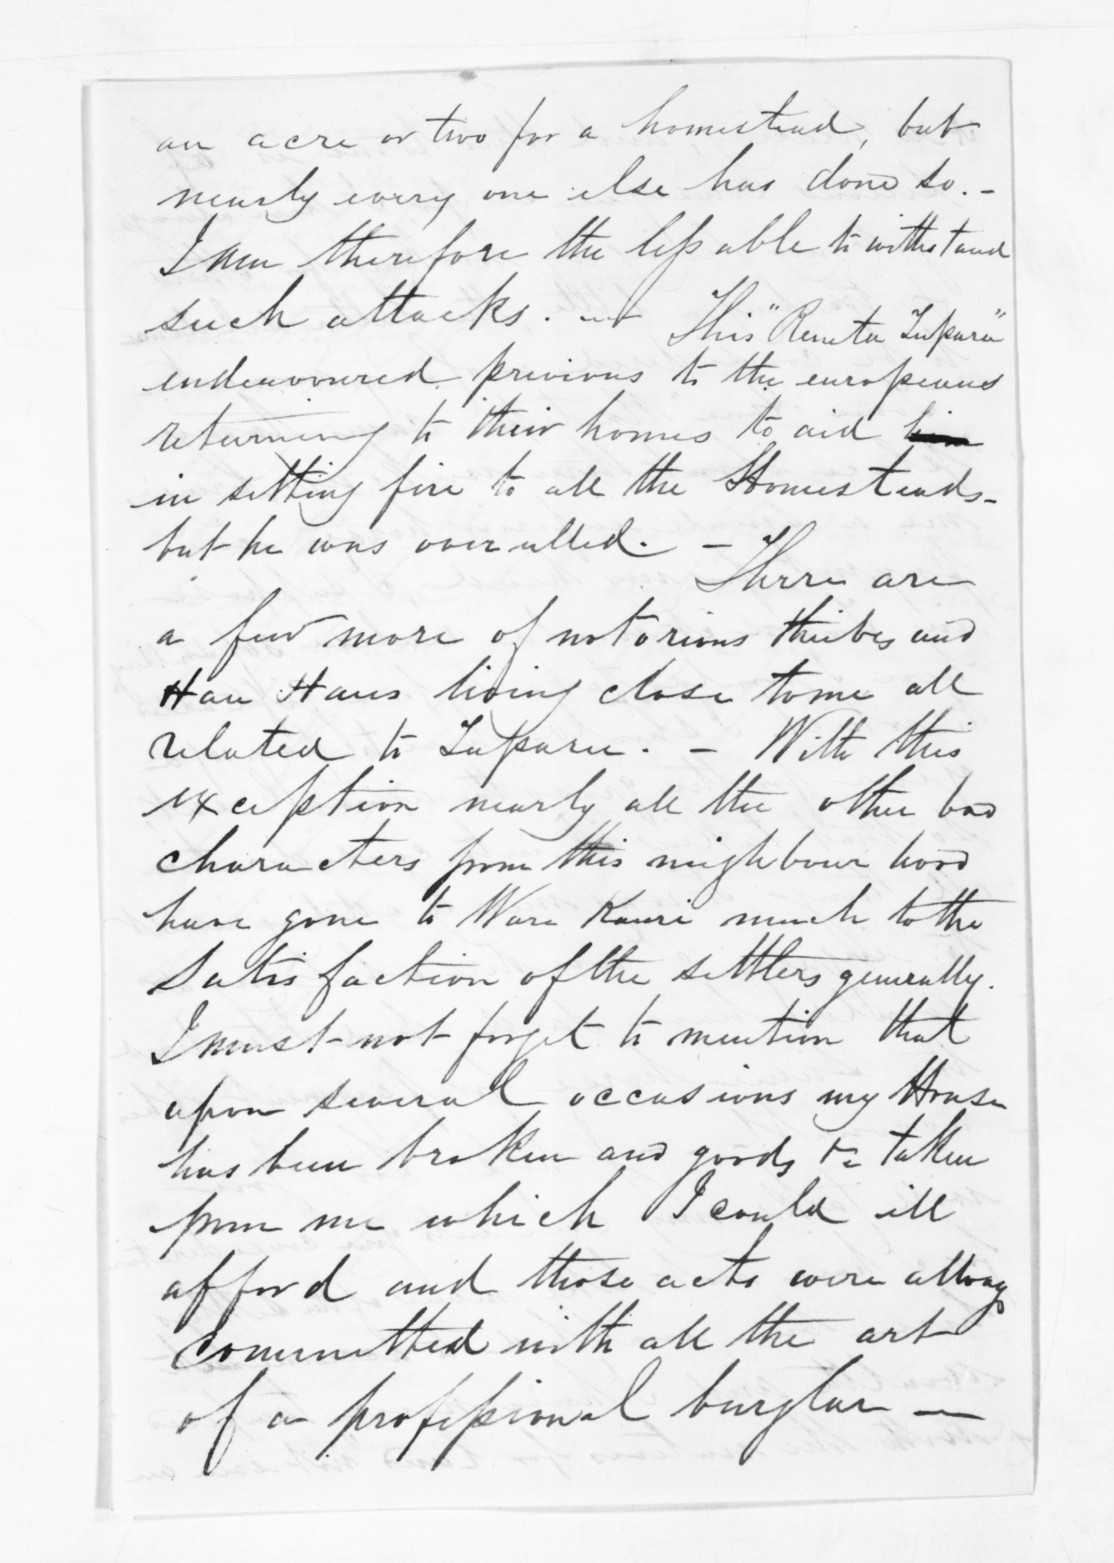 an acre or two for a homestead, but
nearly every one else has done so. -
I am therefore the less able to withstand
such attacks. — This "Reneta Tupara"
endeavoured previous to the europeans
returning to their homes to aid him
in setting fire to all the Homesteads -
but he was overulled. — There are
a few more of notorious thiebes and
Hau Haus living close to me all
related to Tuparu. — With this
exception nearly all the other bad
characters from this neighbourhood
have gone to Ware Kauri much to the
Satisfaction of the settlers generally.
I must not forget to mention that
upon several occasions my House
has been broken and goods &c taken
from me which I could ill
afford and those acts were allways
committed with all the art
of a professional burglar —